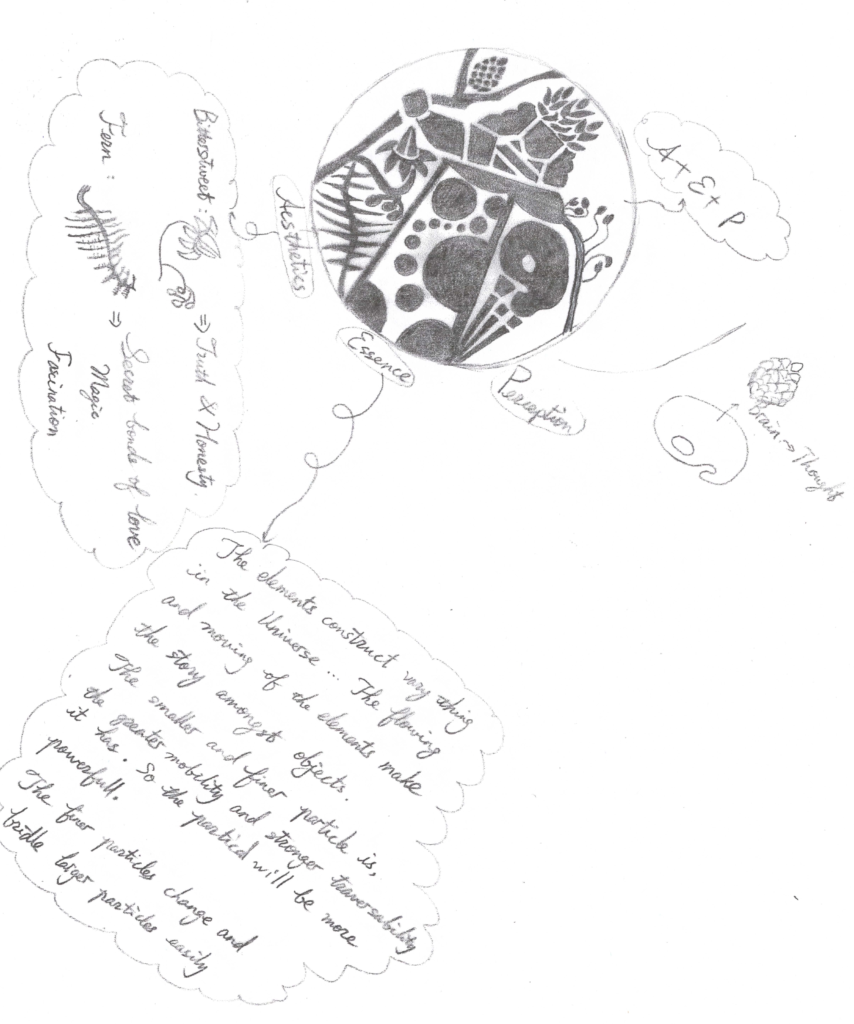 A + E + P
Aesthetics
Essence
Perception
Brain → Thought
Bittersweet : ⇒ Truth & Honesty.
Fern : ⇒ Secret bonds of love
Magic
Fascination
The elements construct vary thing
in the Universe ... The flowing
and moving of the elements make
the story amongst objects.
The smaller and finer particle is,
the greater mobility and stronger traversability
it has. So the partical will be more
powerfull.
The finer particles change and
bridle larger particles easily